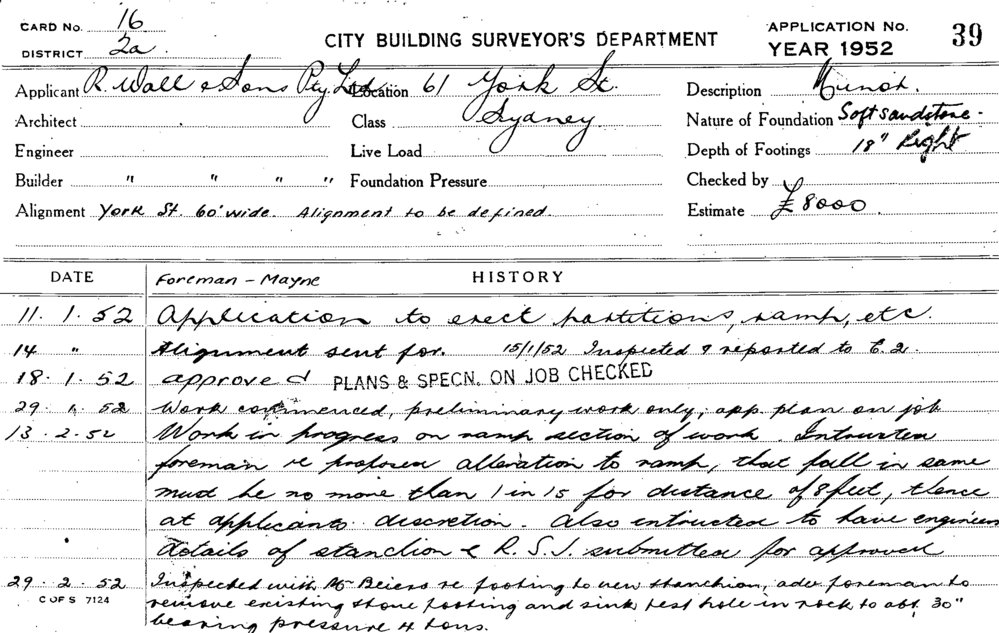 CARD No. 16
DISTRICT 2a.
CITY BUILDING SURVEYOR'S DEPARTMENT
APPLICATION No. 39
YEAR 1952
Applicant R. Wall & Sons Pty Ltd Location 61 York St. Description Minor.
Architect Class Sydney Nature of Foundation Soft sandstone.
Engineer Live Load Depth of Footings 18" Right
Builder " " " " Foundation Pressure Checked by
Alignment York St. 60' wide. Alignment to be defined. Estimate £8000.
DATE Foreman - Mayne HISTORY
11. 1. 52 Application to erect partitions, ramp, etc.
14 " Alignment sent for. 15/1/52 Inspected & reported to C.2.
18. 1. 52 approved PLANS & SPECN. ON JOB CHECKED
29. 1. 52 Work commenced, preliminary work only, app. plan on job
13. 2. 52 Work in progress on ramp section of work. Intructed
foreman re proposed alteration to ramp, that fall in same
must be no more than 1 in 15 for distance of 8 feet, thence
at applicants discretion. Also intructed to have engineer
details of stanchion & R.S.J. submitted for approval
29. 2. 52 Inspected with Beiers re footing to new stanchion, adv. foreman to
C OF S 7124 remove existing stone footing and sink test hole in rock to abt. 30"
bearing pressure 4 tons.